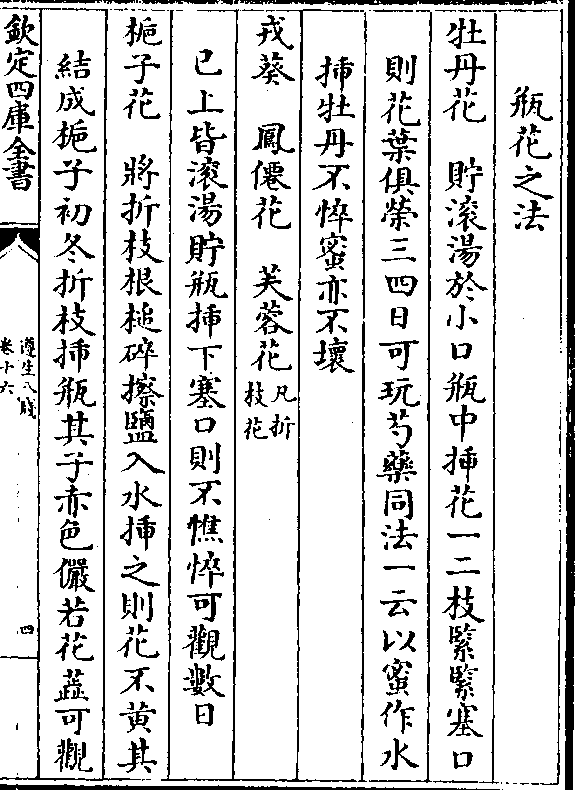 瓶花之法
牡丹花　貯滚湯於小口瓶中揷花一二枝緊緊塞口
則花葉俱榮三四日可玩芍藥同法一云以蜜作水
揷牡丹不悴蜜亦不壞
戎葵　鳳僊花　芙蓉花凡折枝花
已上皆滚湯貯瓶揷下塞口則不憔悴可觀數日
梔子花　將折枝根槌碎擦鹽入水揷之則花不黄其
結成梔子初冬折枝揷瓶其子赤色儼若花蕋可觀
欽定四庫全書
遵生八牋
卷十六
四